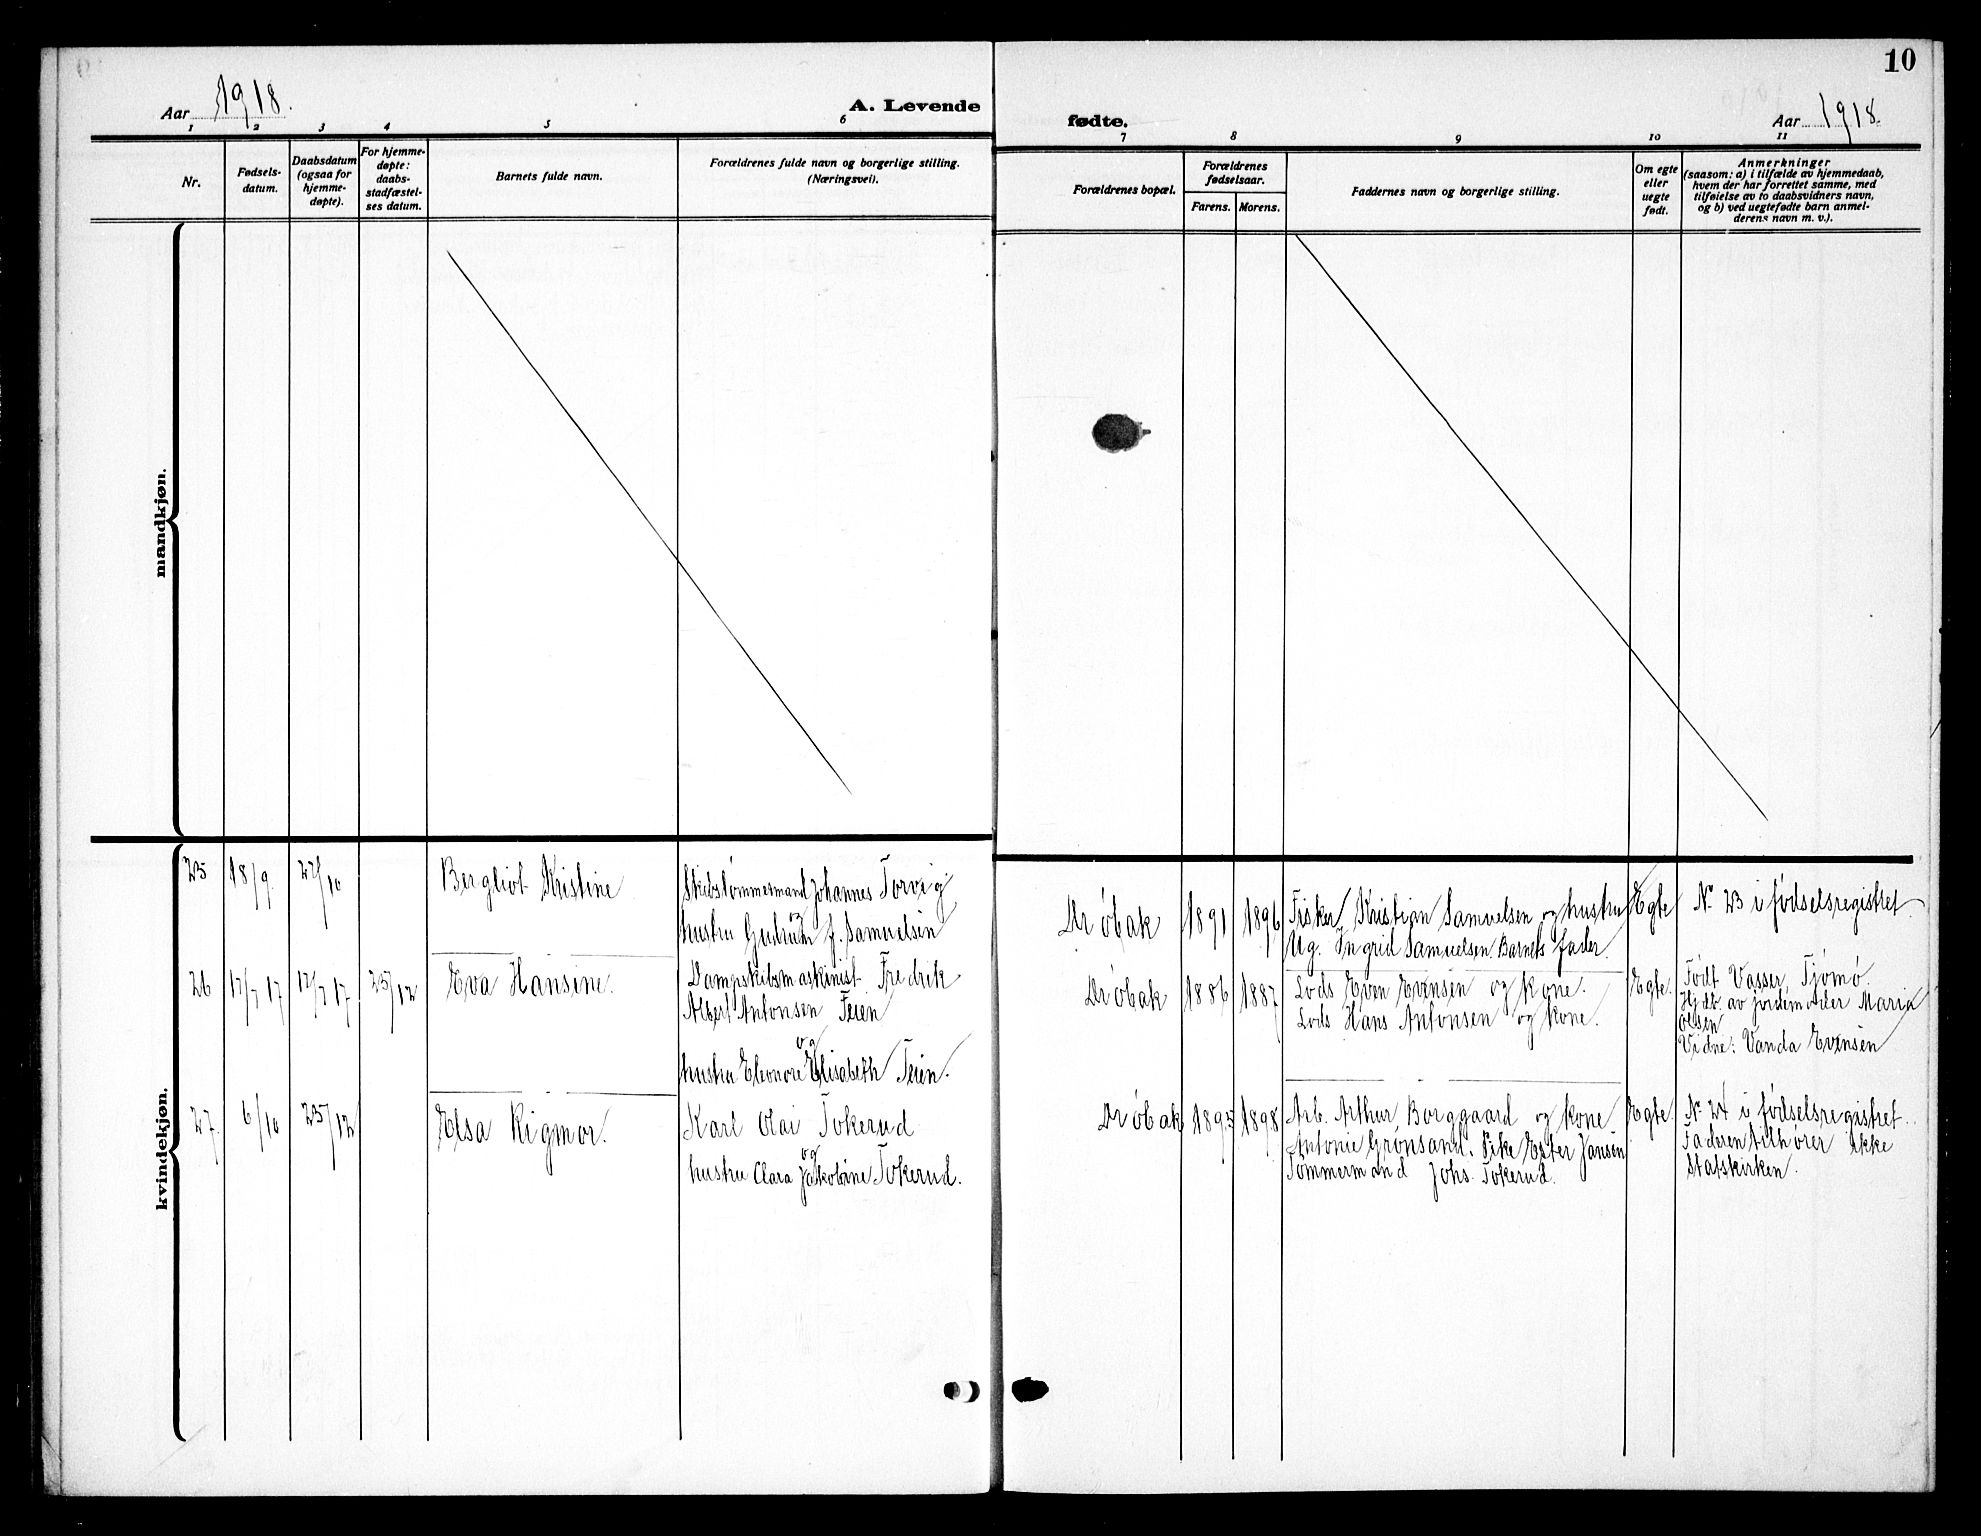 10
Aar 1918.
A. Levende
fødte.
Aar 1918.
1 2 3 4 5 6 7 8 9 10 11
Nr.
Fødsels-
datum.
Daabsdatum
(ogsaa for
hjemme-
døpte).
For hjemme-
døpte:
daabs-
stadfæstel-
ses datum.
Barnets fulde navn.
Forældrenes fulde navn og borgerlige stilling.
(Næringsvei).
Forældrenes bopæl.
Forældrenes
fødselsaar.
Farens. Morens.
Faddernes navn og borgerlige stilling.
Om egte
eller
uegte
født.
Anmerkninger
(saasom: a) i tilfælde av hjemmedaab,
hvem der har forrettet samme, med
tilføielse av to daabsvidners navn,
og b) ved uegtefødte barn anmel-
derens navn m. v.).
mandkjøn.
kvindekjøn.
25 18/9 22/10
Bergliot Kristine
Skibstømmermand Johannes Torvig
og
hustru Gudrun f. Samuelsen
Drøbak 1891 1896
Fisker Kristian Samuelsen og hustru
Ug. Ingrid Samuelsen. Barnets fader.
Egte
No 23 i fødselsregistret.
26 12/7 17 12/7 17 25/12
Eva Hansine.
Dampskibsmaskinist Fredrik
Albert Antonsen Teien
og
hustru Eleonore Elisabeth Teien.
Drøbak 1886 1887
Lods Even Evensen og kone.
Lods Hans Antonsen og kone.
Egte.
Født Vasser, Tjömö.
Hjdb. av jordemoder Maria
Olsen
Vidne: Vanda Evensen
27. 6/10 25/12
Elsa Rigmor.
Karl Olai Tokerud
og
hustru Clara Jakobine Tokerud.
Drøbak 1895 1898
Arb. Arthur Borggaard og kone
Antonie Grønsand. Pike Ester Jansen
Tømmermand Johs. Tokerud.
Egte.
No 24 i fødselsregistret.
Faderen tilhører ikke
Statskirken.